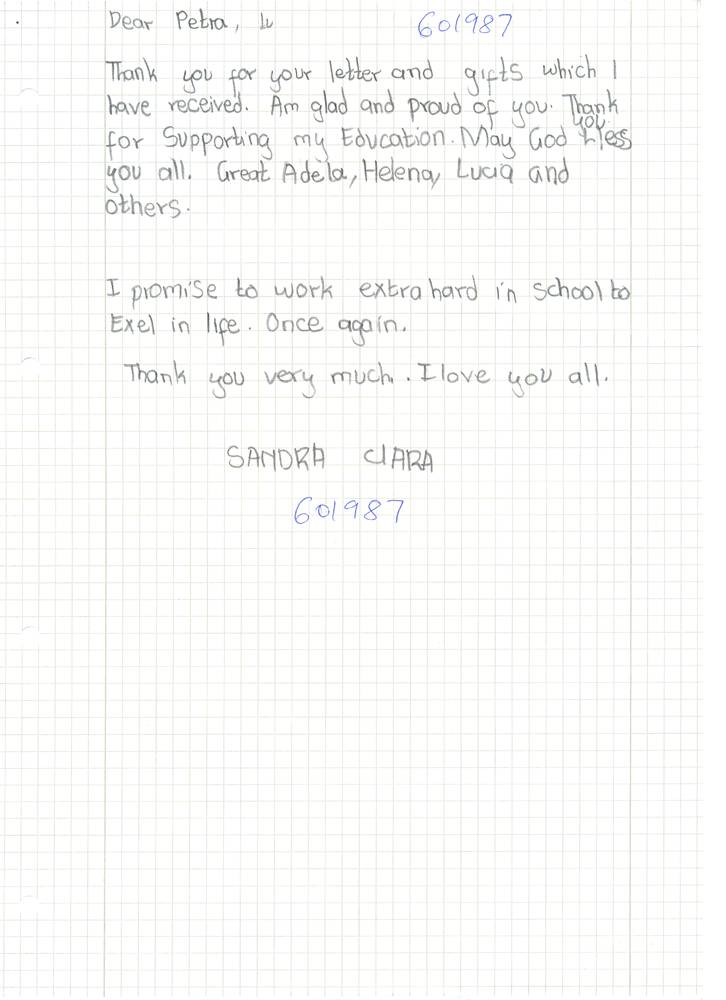 Dear Petra, 601987
Thank you for your letter and gifts which I
have received. Am glad and proud of you. Thank
you
for Supporting my Education. May God bless
you all. Great Adela, Helena, Lucia and
others.
I promise to work extra hard in school to
Exel in life. Once again.
Thank you very much. I love you all.
SANDRA ClARA
601987